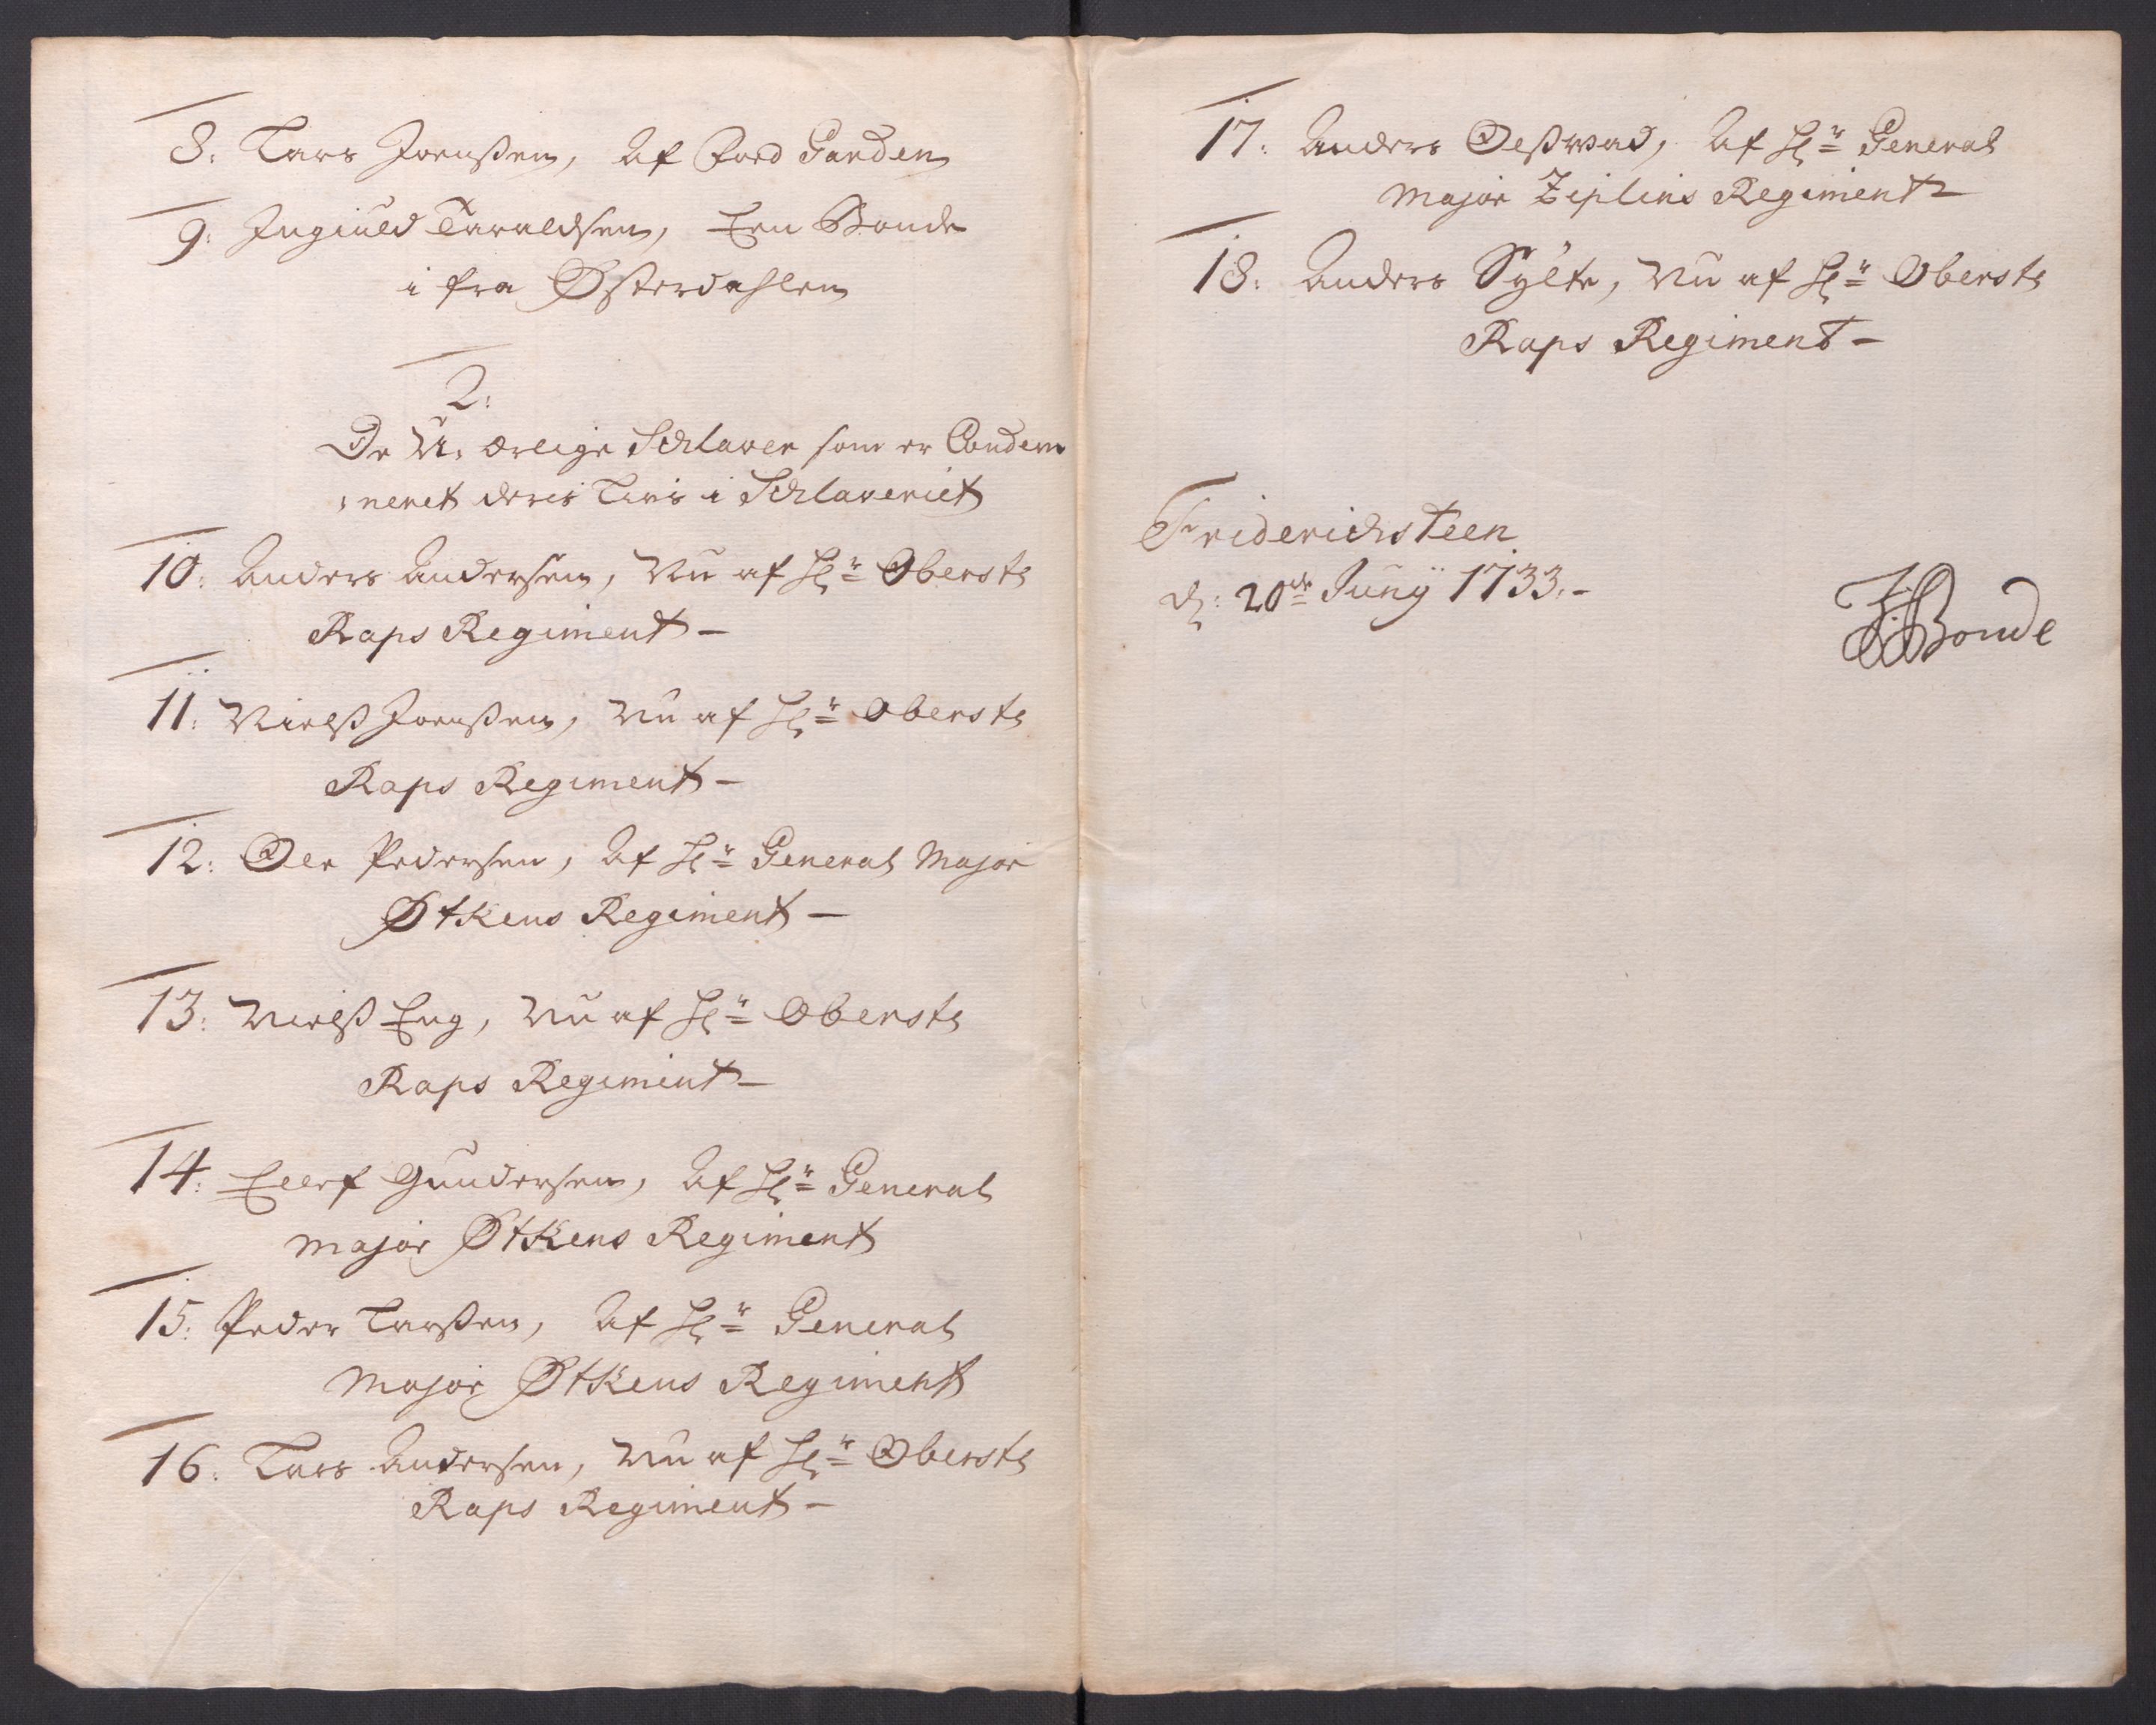 8: Lars Joenßen, Af Fod Garden
9: Ingiuld Taraldsen, Een Bonde
i fra Østerdahlen
2:
De U. ærlige Schlaver som er Condem
:neret deres Livs i Schlaveriet
10: Anders Andersen, Nu af Hr Obersts
Raps Regiment –
11: Nielß Joenßen, Nu af Hr Obersts
Raps Regiment –
12: Ole Pedersen, Af Hr General Major
Øtkens Regiment –
13: Nielß Eng, Nu af Hr Obersts
Raps Regiment –
14: Elef Gundersen, Af Hr General
Major Øtkens Regiment
15: Peder Larßen, Af Hr General
Major Øtkens Regiment
16: Lars Andersen, Nu af Hr Obersts
Raps Regiment –
17: Anders Oeßwad, Af Hr General
Major Ziplins Regiment –
18: Anders Sylte, Nu af Hr Obersts
Raps Regiment –
Friderichsteen
d: 20de Junÿ 1733. –
Bonde